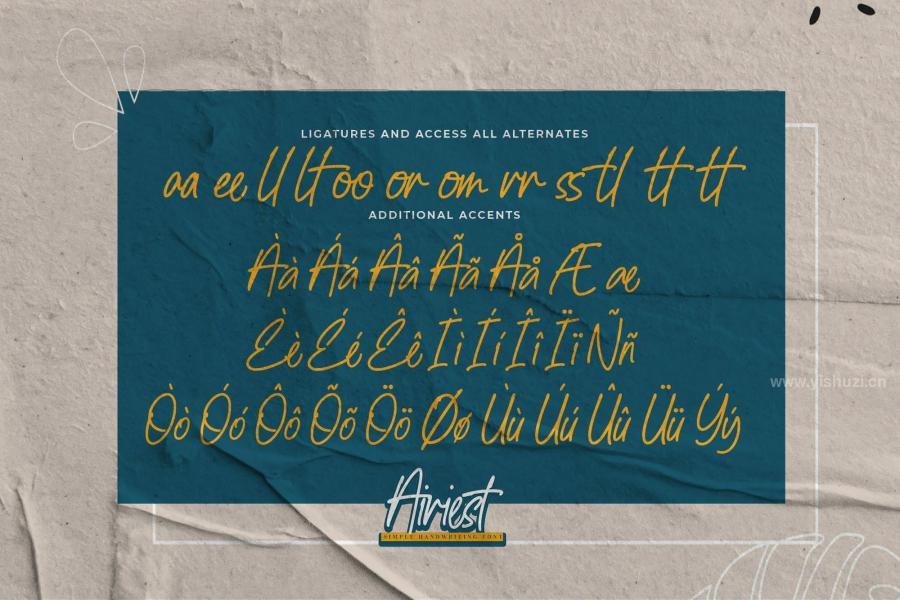 LIGATURES AND ACCESS ALL ALTERNATES
aa ee ll lt oo or om rr ss tl tt tt
ADDITIONAL ACCENTS
Àà Áá Ââ Ãã Åå Æ æ
Èè Éé Êê Ìì Íí Îî Ïï Ññ
Òò Óó Ôô Õõ Öö Øø Ùù Úú Ûû Üü Ýý
www.yishuzi.cn
Airiest
SIMPLE HANDWRITING FONT